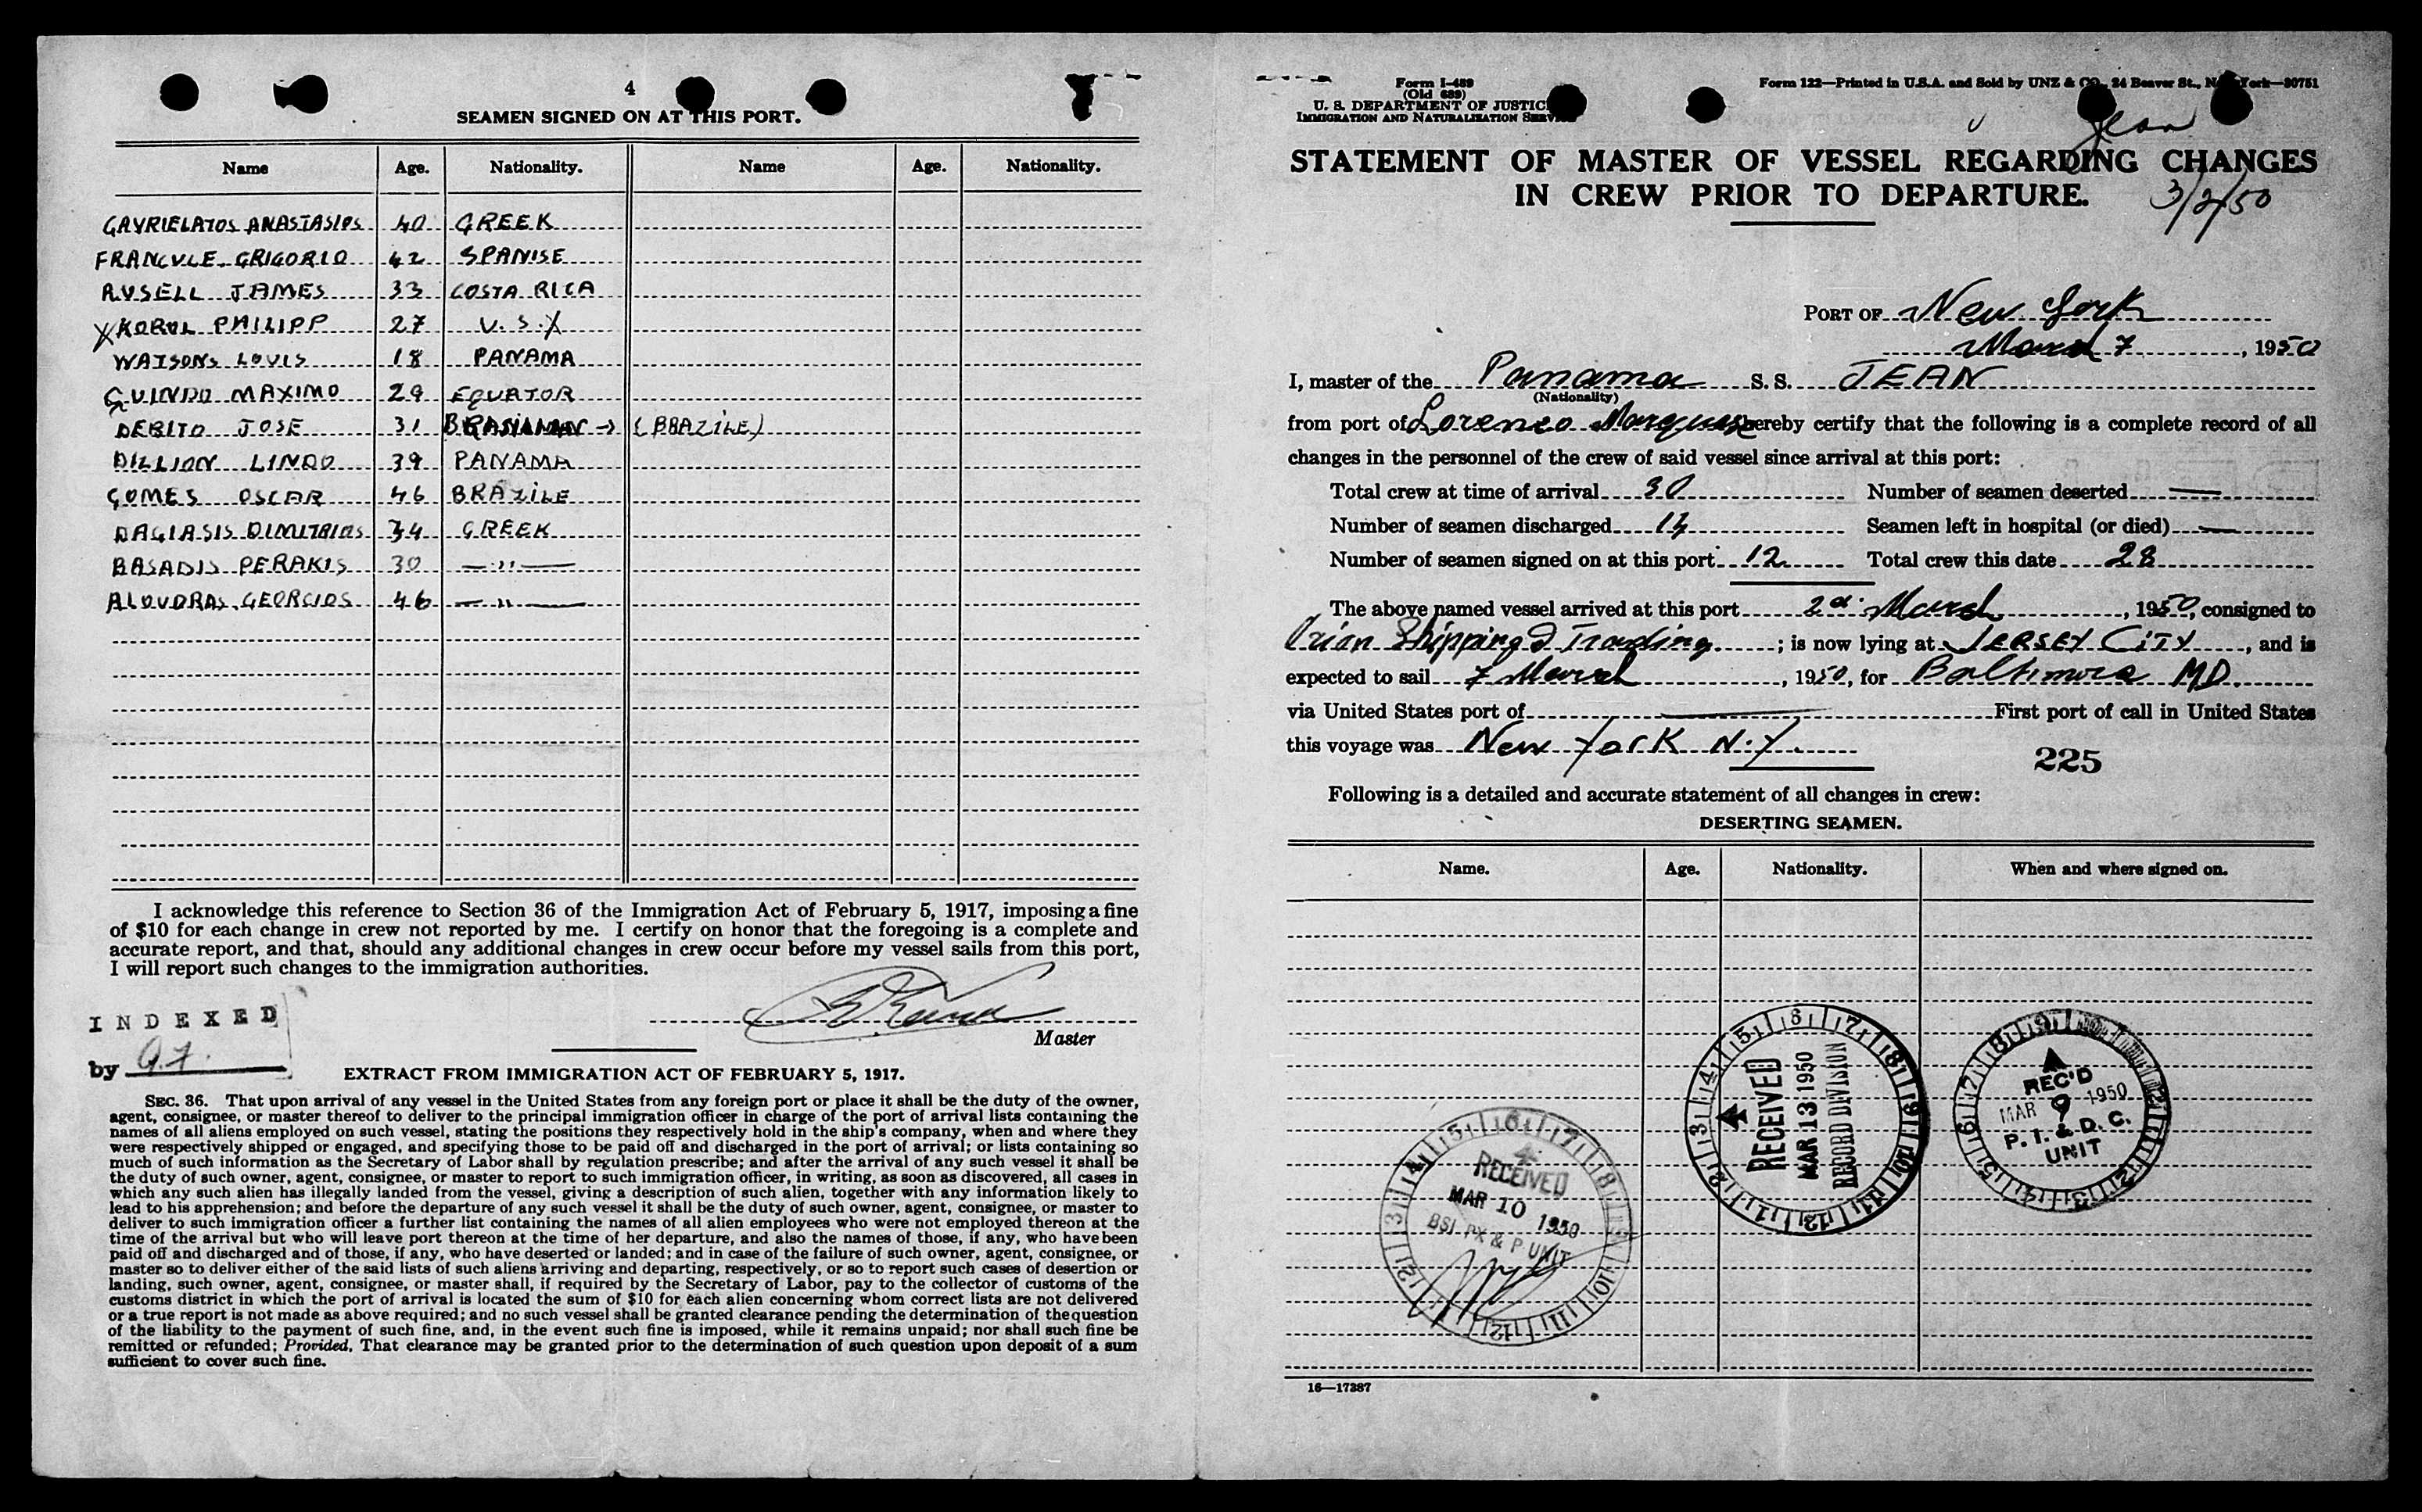 4
SEAMEN SIGNED ON AT THIS PORT.
Name Age. Nationality. Name Age. Nationality.
GAVRIELATOS ANASTASIOS 40 GREEK
FRANCULE GRIGORIO 42 SPANISE
RUSELL JAMES 33 COSTA RICA
X KOROL PHILIPP 27 U.S. X
WATSONS LOUIS 18 PANAMA
GUINDO MAXIMO 29 EQUATOR
DEBITO JOSE 31 BRASILIAN → (BRAZILE)
DILLION LINDO 39 PANAMA
GOMES OSCAR 46 BRAZILE
DAGIASIS DIMITRIOS 34 GREEK
BASADIS PERAKIS 30 — " —
ALOUDRAS GEORGIOS 46 — " —
I acknowledge this reference to Section 36 of the Immigration Act of February 5, 1917, imposing a fine
of $10 for each change in crew not reported by me. I certify on honor that the foregoing is a complete and
accurate report, and that, should any additional changes in crew occur before my vessel sails from this port,
I will report such changes to the immigration authorities.
Master
INDEXED
by
EXTRACT FROM IMMIGRATION ACT OF FEBRUARY 5, 1917.
SEC. 36. That upon arrival of any vessel in the United States from any foreign port or place it shall be the duty of the owner,
agent, consignee, or master thereof to deliver to the principal immigration officer in charge of the port of arrival lists containing the
names of all aliens employed on such vessel, stating the positions they respectively hold in the ship's company, when and where they
were respectively shipped or engaged, and specifying those to be paid off and discharged in the port of arrival; or lists containing so
much of such information as the Secretary of Labor shall by regulation prescribe; and after the arrival of any such vessel it shall be
the duty of such owner, agent, consignee, or master to report to such immigration officer, in writing, as soon as discovered, all cases in
which any such alien has illegally landed from the vessel, giving a description of such alien, together with any information likely to
lead to his apprehension; and before the departure of any such vessel it shall be the duty of such owner, agent, consignee, or master to
deliver to such immigration officer a further list containing the names of all alien employees who were not employed thereon at the
time of the arrival but who will leave port thereon at the time of her departure, and also the names of those, if any, who have been
paid off and discharged and of those, if any, who have deserted or landed; and in case of the failure of such owner, agent, consignee, or
master so to deliver either of the said lists of such aliens arriving and departing, respectively, or so to report such cases of desertion or
landing, such owner, agent, consignee, or master shall, if required by the Secretary of Labor, pay to the collector of customs of the
customs district in which the port of arrival is located the sum of $10 for each alien concerning whom correct lists are not delivered
or a true report is not made as above required; and no such vessel shall be granted clearance pending the determination of the question
of the liability to the payment of such fine, and, in the event such fine is imposed, while it remains unpaid; nor shall such fine be
remitted or refunded; Provided, That clearance may be granted prior to the determination of such question upon deposit of a sum
sufficient to cover such fine.
Form I-489
(Old 689)
U. S. DEPARTMENT OF JUSTICE
IMMIGRATION AND NATURALIZATION SERVICE
Form 122—Printed in U.S.A. and Sold by UNZ & CO., 24 Beaver St., New York—30751
Jean
STATEMENT OF MASTER OF VESSEL REGARDING CHANGES
IN CREW PRIOR TO DEPARTURE.
3/2/50
PORT OF New York
March 7, 1950
I, master of the Panama S. S. JEAN
(Nationality)
from port of Lorenzo Marques hereby certify that the following is a complete record of all
changes in the personnel of the crew of said vessel since arrival at this port:
Total crew at time of arrival 30 Number of seamen deserted —
Number of seamen discharged 14 Seamen left in hospital (or died) —
Number of seamen signed on at this port 12 Total crew this date 28
The above named vessel arrived at this port 2d. March, 1950, consigned to
Orion Shipping & Trading; is now lying at JERSEY CITY, and is
expected to sail 7 March, 1950, for Baltimore MD.
via United States port of — First port of call in United States
this voyage was New York N.Y.
225
Following is a detailed and accurate statement of all changes in crew:
DESERTING SEAMEN.
Name. Age. Nationality. When and where signed on.
RECEIVED
MAR 10 1950
BSI PX & P UNIT
RECEIVED
MAR 13 1950
RECORD DIVISION
REC'D
MAR 9 1950
P. I. & D. C.
UNIT
16—17387